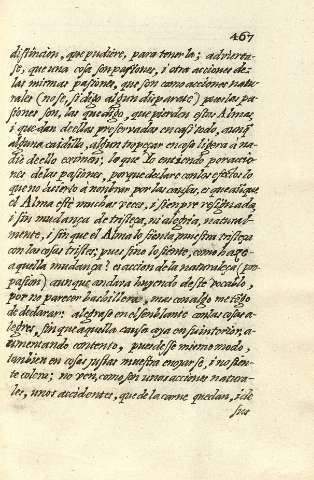 467
distincion, que pudiere, para tenerla; advierta-
se, que una cosa son pasiones, i otra acciones de
las mismas pasiones, que son como acciones natu-
rales (no se, si digo algun disparate) pues las pa-
siones son, las que digo, que pierden estas Almas,
i que dan de ellas preservadas en casi todo, aunq
alguna caidilla, algun tropeçar en cosa ligera à na-
die de ello eximan; lo que Io entiendo, por accio-
nes de las pasiones, por que declare con los efectos lo
que no acierto à nombrar por las causas, es que aũque
el Alma esté muchas veces, i siempre resignada,
i sin mudança de tristeça, ni alegria, nactural-
mente, i sin que el Alma lo sienta, muestra tristeça
con las cosas tristes, pues sino lo siente, como haçe
aquella mudança? es accion de la naturaleça (por
pasion) aunque andava huyendo de este vocablo,
por no parecer bachillera, mas con algo me tẽgo
de declarar: alegrase en el semblante con las cosas a-
legres, sin que aquella causa aya en su interior, a-
umentando contento, puede ser mismo modo,
tambien en cosas justas muestra enojarse, i no sien-
te colera; no ven, como son unas acciones natura-
les, unos accidentes, que de la carne quedan, i de
sus